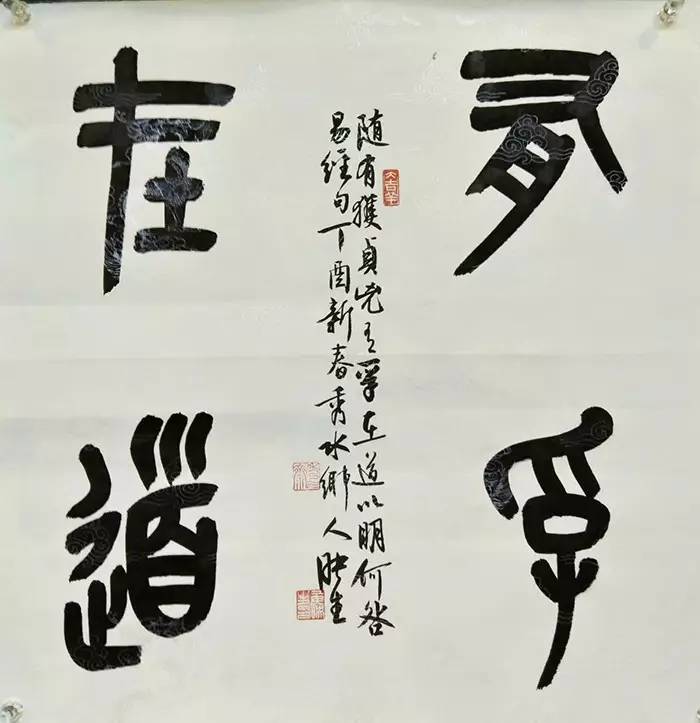 有孚
随有獲貞凶有孚在道以明何咎
易經句丁酉新春秀水鄉人
在道
大吉羊